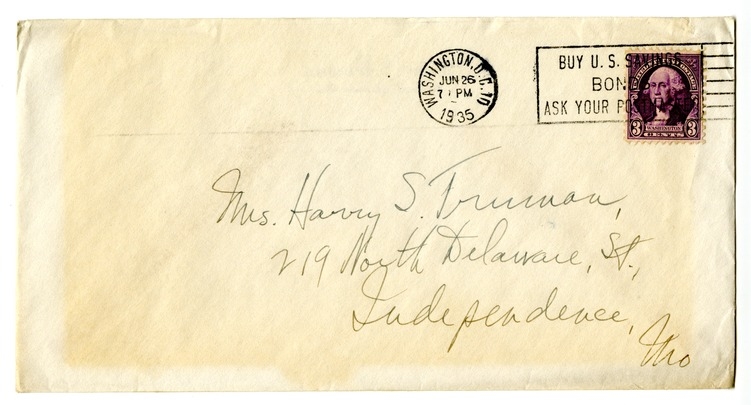 WASHINGTON, D.C. 10
JUN 26
7 PM
1935
BUY U.S. SAVINGS
BON
ASK YOUR POST
3 WASHINGTON 3
Mrs. Harry S. Truman,
219 North Delaware, St.,
Independence,
Mo